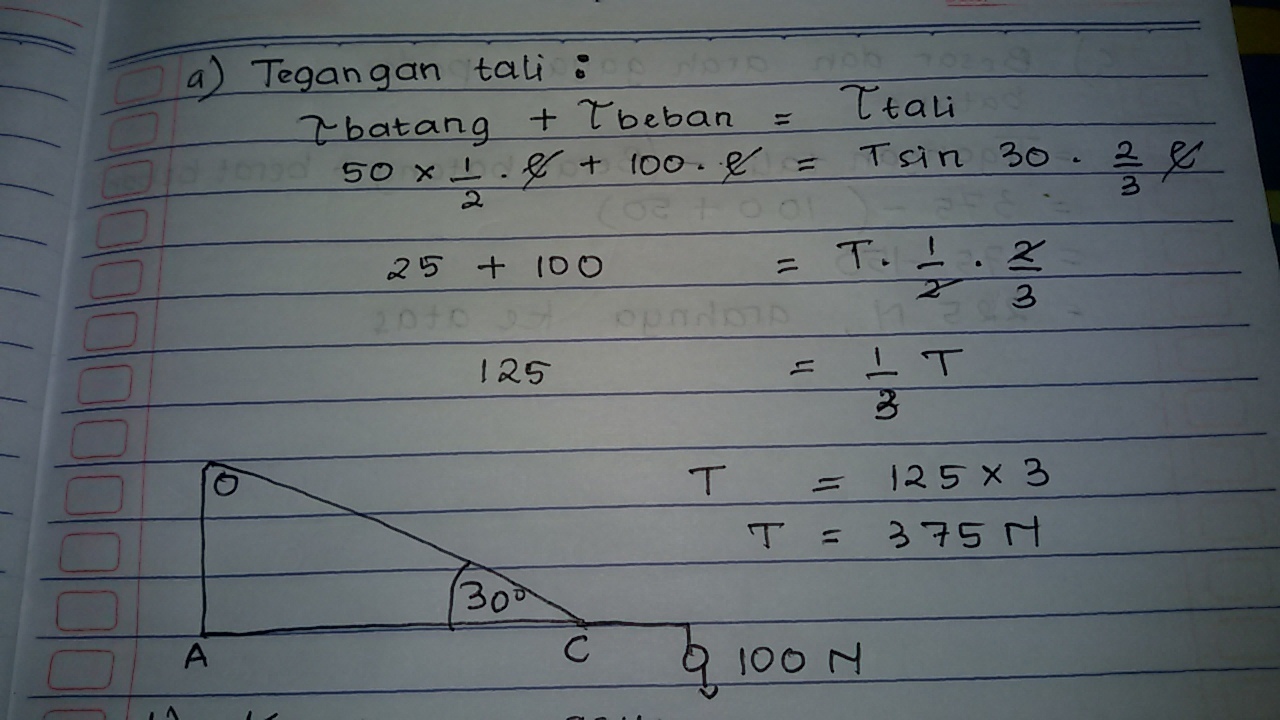 a) Tegangan tali :
τbatang + τbeban = τtali
50 × 1/2 . ℓ + 100 . ℓ = T sin 30 . 2/3 ℓ
25 + 100 = T . 1/2 . 2/3
125 = 1/3 T
T = 125 × 3
T = 375 N
O
30°
A C 100 N